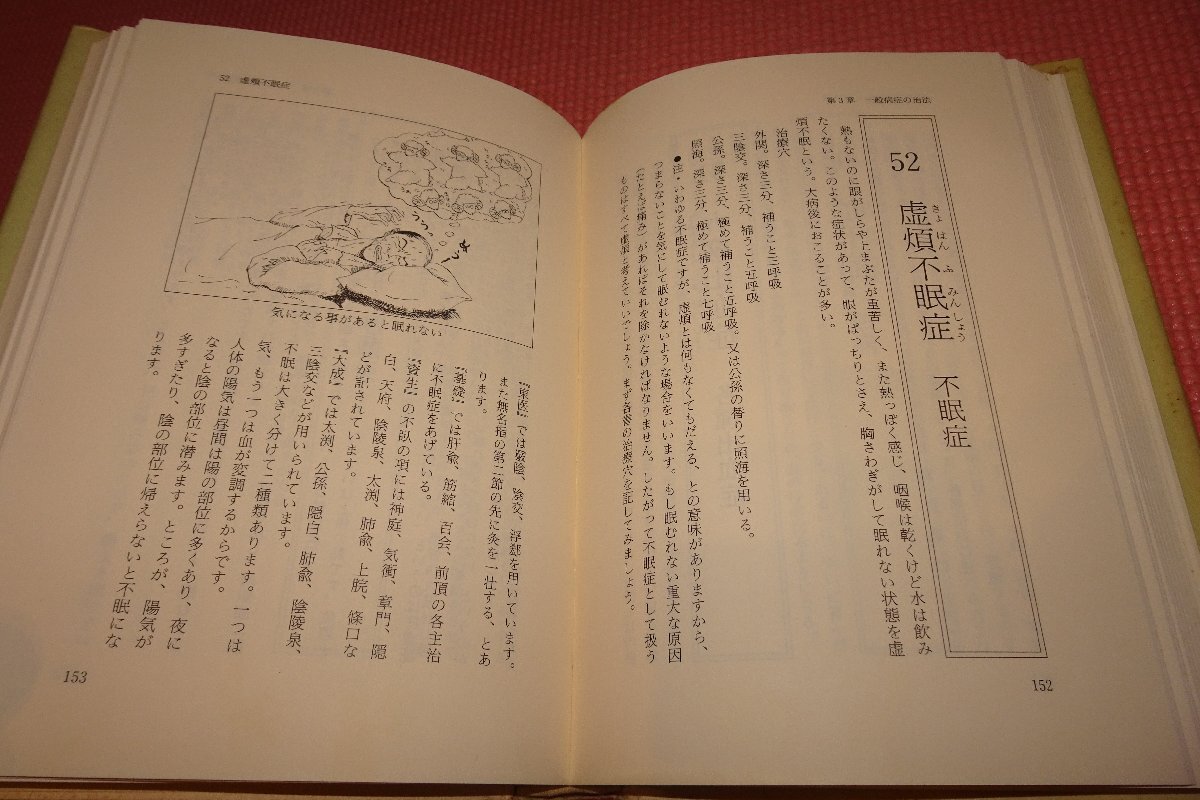 第3章 一般病症の治法
52 虚煩不眠症 不眠症
きょ はん ふ みんしょう
熱もないのに眼がしらや上まぶたが重苦しく、また熱っぽく感じ、咽喉は乾くけど水は飲み
たくない。このような症状があって、眼がぱっちりとさえ、胸さわぎがして眠れない状態を虚
煩不眠という。大病後におこることが多い。
治療穴
外関。深さ三分、補うこと三呼吸
三陰交。深さ三分、補うこと五呼吸
公孫。深さ三分、極めて補うこと五呼吸。又は公孫の替りに照海を用いる。
照海。深さ三分、極めて補うこと七呼吸
●注・いわゆる不眠症ですが、虚煩とは何もなくてもだえる、との意味がありますから、
つまらないことを気にして眠むれないような場合をいいます。もし眠むれない重大な原因
(たとえば痛み)があればそれを除かなければなりません。したがって不眠症として扱う
ものはすべて虚煩と考えていいでしょう。まず各書の治療穴を記してみましょう。
152
52 虚煩不眠症
うっ、
うっ
気になる事があると眠れない
では厥陰、陰交、浮郄を用いています。
また無名指の第二節の先に灸を一壮する、とあ
ります。
では肝兪、筋縮、百会、前頂の各主治
に不眠症をあげている。
『資生』の不臥の項には神庭、気衝、章門、隠
白、天府、陰陵泉、太渕、肺兪、上脘、條口な
どが記されています。
『大成』では太渕、公孫、隠白、肺兪、陰陵泉、
三陰交などが用いられています。
不眠は大きく分けて二種類あります。一つは
気、もう一つは血が変調するからです。
人体の陽気は昼間は陽の部位に多くあり、夜に
なると陰の部位に潜みます。ところが、陽気が
多すぎたり、陰の部位に帰えらないと不眠にな
ります。
153